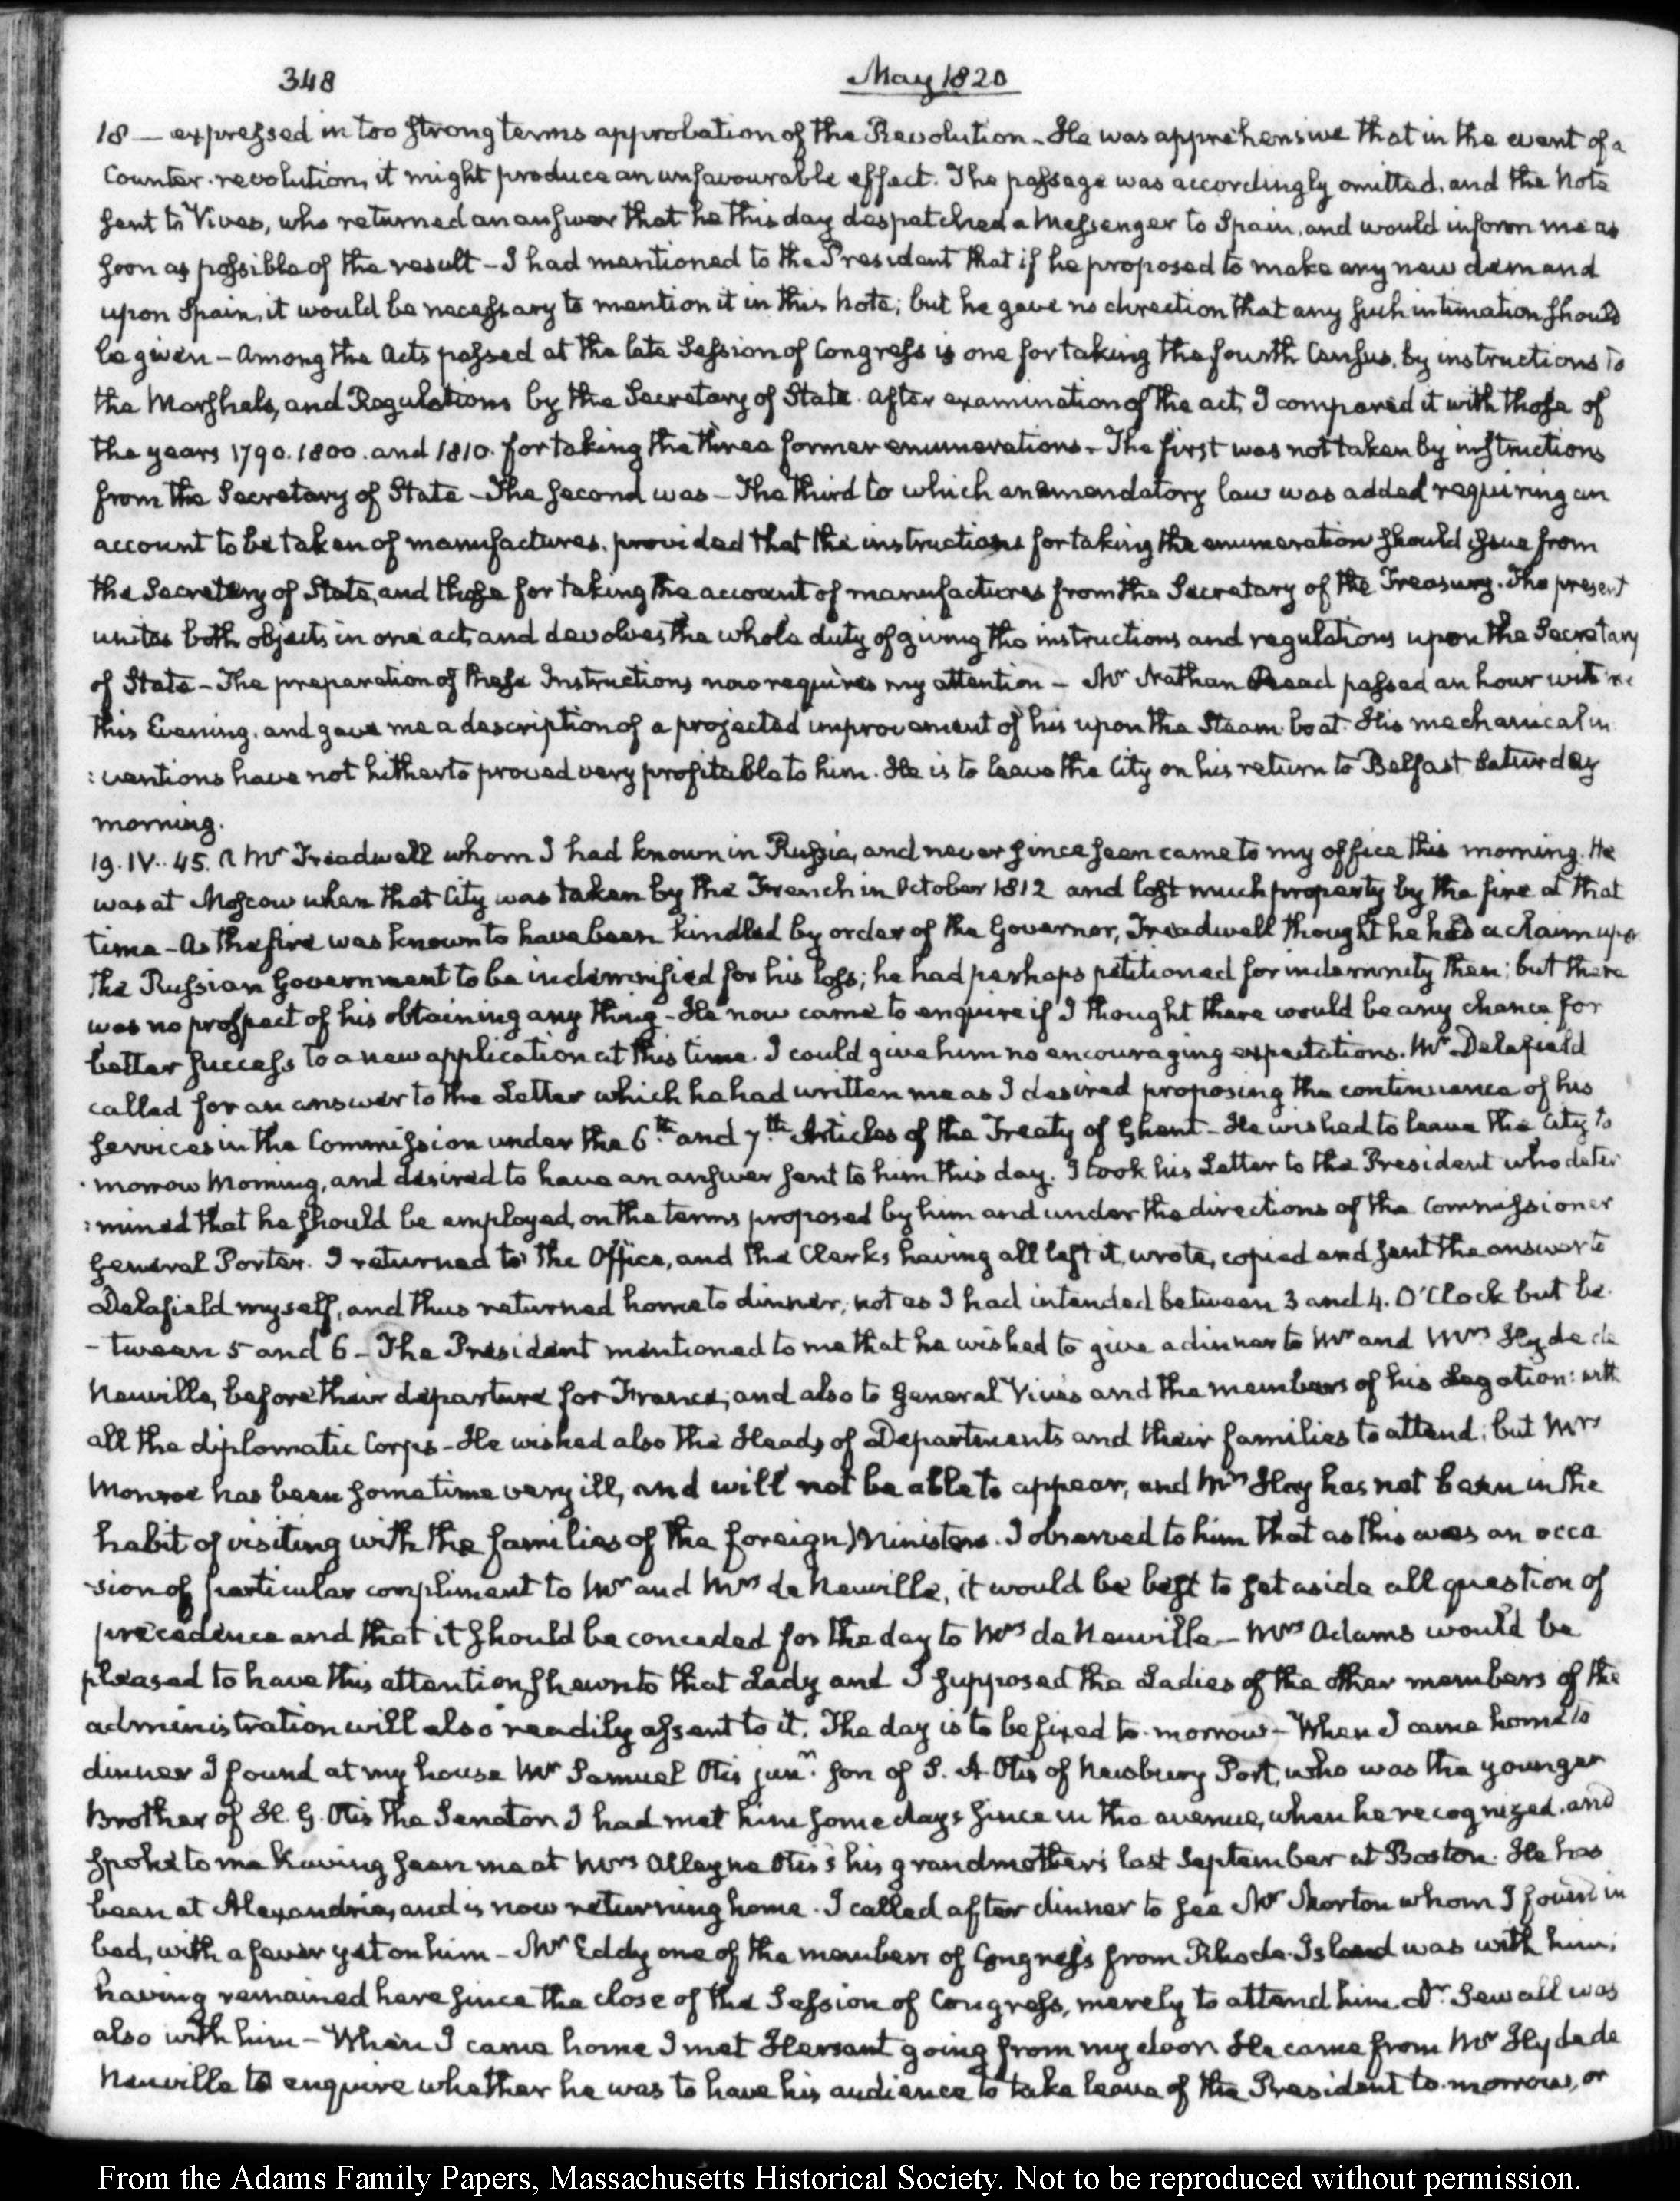 348
May 1820
18 — expressed in too strong terms approbation of the Revolution - He was apprehensive that in the event of a
Counter-revolution, it might produce an unfavourable effect. The passage was accordingly omitted, and the Note
sent to Vives, who returned an answer that he this day despatched a Messenger to Spain, and would inform me as
soon as possible of the result - I had mentioned to the President that if he proposed to make any new demand
upon Spain, it would be necessary to mention it in this Note; but he gave no direction that any such intimation should
be given - Among the Acts passed at the late Session of Congress is one for taking the fourth Census, by instructions to
the Marshals, and Regulations by the Secretary of State. After examination of the act, I compared it with those of
the years 1790. 1800. and 1810. for taking the three former enumerations - The first was not taken by instructions
from the Secretary of State - The second was - The third to which an amendatory law was added requiring an
account to be taken of manufactures, provided that the instructions for taking the enumeration should issue from
the Secretary of State, and those for taking the account of manufactures from the Secretary of the Treasury. The present
unites both objects in one act, and devolves the whole duty of giving the instructions and regulations upon the Secretary
of State - The preparation of these Instructions now requires my attention - Mr Nathan Read passed an hour with me
this Evening, and gave me a description of a projected improvement of his upon the Steam-boat. His mechanical in
:ventions have not hitherto proved very profitable to him. He is to leave the City on his return to Belfast Saturday
morning.
19. IV. 45. A Mr Treadwell whom I had known in Russia, and never since seen came to my office this morning. He
was at Moscow when that City was taken by the French in October 1812 and lost much property by the fire at that
time - As the fire was known to have been kindled by order of the Governor, Treadwell thought he had a claim upon
the Russian Government to be indemnified for his loss; he had perhaps petitioned for indemnity then; but there
was no prospect of his obtaining any thing - He now came to enquire if I thought there would be any chance for
better success to a new application at this time. I could give him no encouraging expectations. Mr Delafield
called for an answer to the Letter which he had written me as I desired proposing the continuance of his
services in the Commission under the 6th and 7th Articles of the Treaty of Ghent - He wished to leave the City to
-morrow Morning, and desired to have an answer sent to him this day. I took his Letter to the President who deter
:mined that he should be employed, on the terms proposed by him and under the directions of the Commissioner
General Porter. I returned to the Office, and the Clerks having all left it, wrote, copied and sent the answer to
Delafield myself, and thus returned home to dinner, not as I had intended between 3 and 4. O'Clock but be-
-tween 5 and 6 - The President mentioned to me that he wished to give a dinner to Mr and Mrs Hyde de
Neuville, before their departure for France; and also to General Vives and the members of his Legation: with
all the diplomatic Corps - He wished also the Heads of Departments and their families to attend; but Mrs
Monroe has been sometime very ill, and will not be able to appear, and Mrs Hay has not been in the
habit of visiting with the families of the foreign Ministers. I observed to him that as this was an occa
-sion of particular compliment to Mr and Mrs de Neuville, it would be best to set aside all question of
precedence and that it should be conceded for the day to Mrs de Neuville - Mrs Adams would be
pleased to have this attention shewn to that Lady and I supposed the Ladies of the other members of the
administration will also readily assent to it. The day is to be fixed to-morrow - When I came home to
dinner I found at my house Mr Samuel Otis junr. son of S. A Otis of Newbury Port, who was the younger
Brother of H. G. Otis the Senator. I had met him some days since in the avenue, when he recognized, and
spoke to me having seen me at Mrs Alleyne Otis's his grandmother's last September at Boston. He has
been at Alexandria, and is now returning home. I called after dinner to see Mr Morton whom I found in
bed, with a fever yet on him - Mr Eddy one of the members of Congress from Rhode-Island was with him;
having remained here since the close of the Session of Congress, merely to attend him. Dr. Sewall was
also with him - When I came home I met Hersant going from my door. He came from Mr Hyde de
Neuville to enquire whether he was to have his audience to take leave of the President to-morrow, or
From the Adams Family Papers, Massachusetts Historical Society. Not to be reproduced without permission.